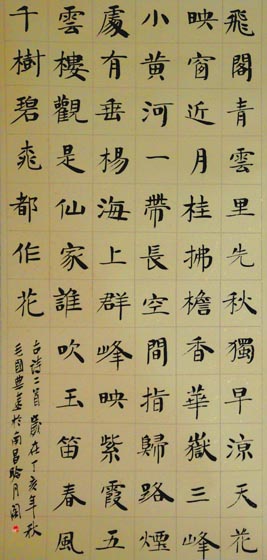 飛閣青雲里先秋獨早涼天花
映窗近月桂拂檐香華嶽三峰
小黃河一帶長空間指歸路煙
處有垂楊海上群峰映紫霞五
雲樓觀是仙家誰吹玉笛春風
千樹碧桃都作花
古詩二首歲在丁亥年秋
毛國典書於南昌晗月閣